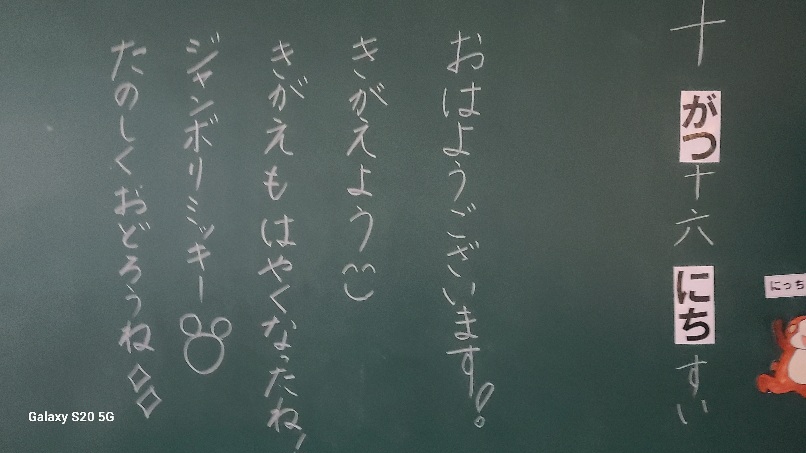 十がつ十六にちすい
おはようございます!
きがえよう
きがえもはやくなったね!
ジャンボリミッキー
たのしくおどろうね
にっち
Galaxy S20 5G